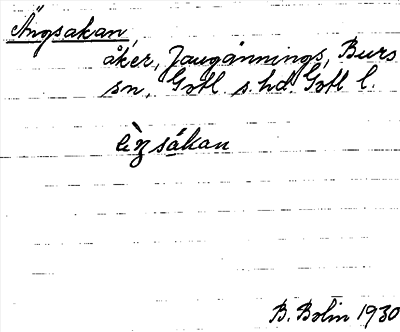 Ängsakan,
åker, Jaugännings, Burs
sn, Gotl. s. hd. Gotl l.
èŋsákan
B. Bolin 1930